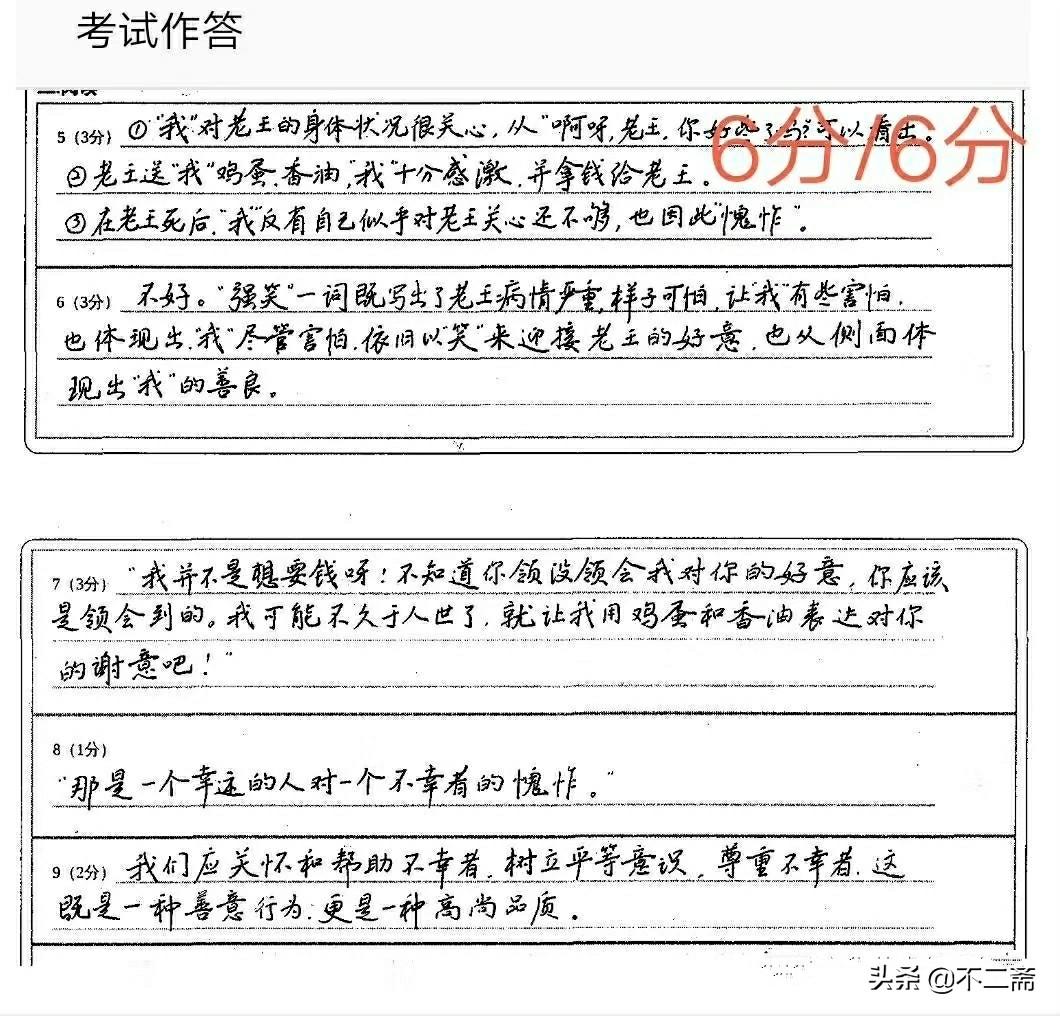 考试作答
二.阅读
5 (3分) ①"我"对老王的身体状况很关心,从"啊呀,老王,你好些了吗?"可以看出。
6分/6分
②老王送"我"鸡蛋、香油,"我"十分感激,并拿钱给老王。
③在老王死后,"我"反有自己似乎对老王关心还不够,也因此"愧怍"。
6 (3分) 不好。"强笑"一词既写出了老王病情严重,样子可怕,让"我"有些害怕,
也体现出"我"尽管害怕,依旧以"笑"来迎接老王的好意,也从侧面体
现出"我"的善良。
7 (3分) "我并不是想要钱呀!不知道你领没领会我对你的好意,你应该
是领会到的。我可能不久于人世了,就让我用鸡蛋和香油表达对你
的谢意吧!"
8 (1分)
"那是一个幸运的人对一个不幸者的愧怍。"
9 (2分) 我们应关怀和帮助不幸者,树立平等意识,尊重不幸者,这
既是一种善意行为,更是一种高尚品质。
头条 @不二斋